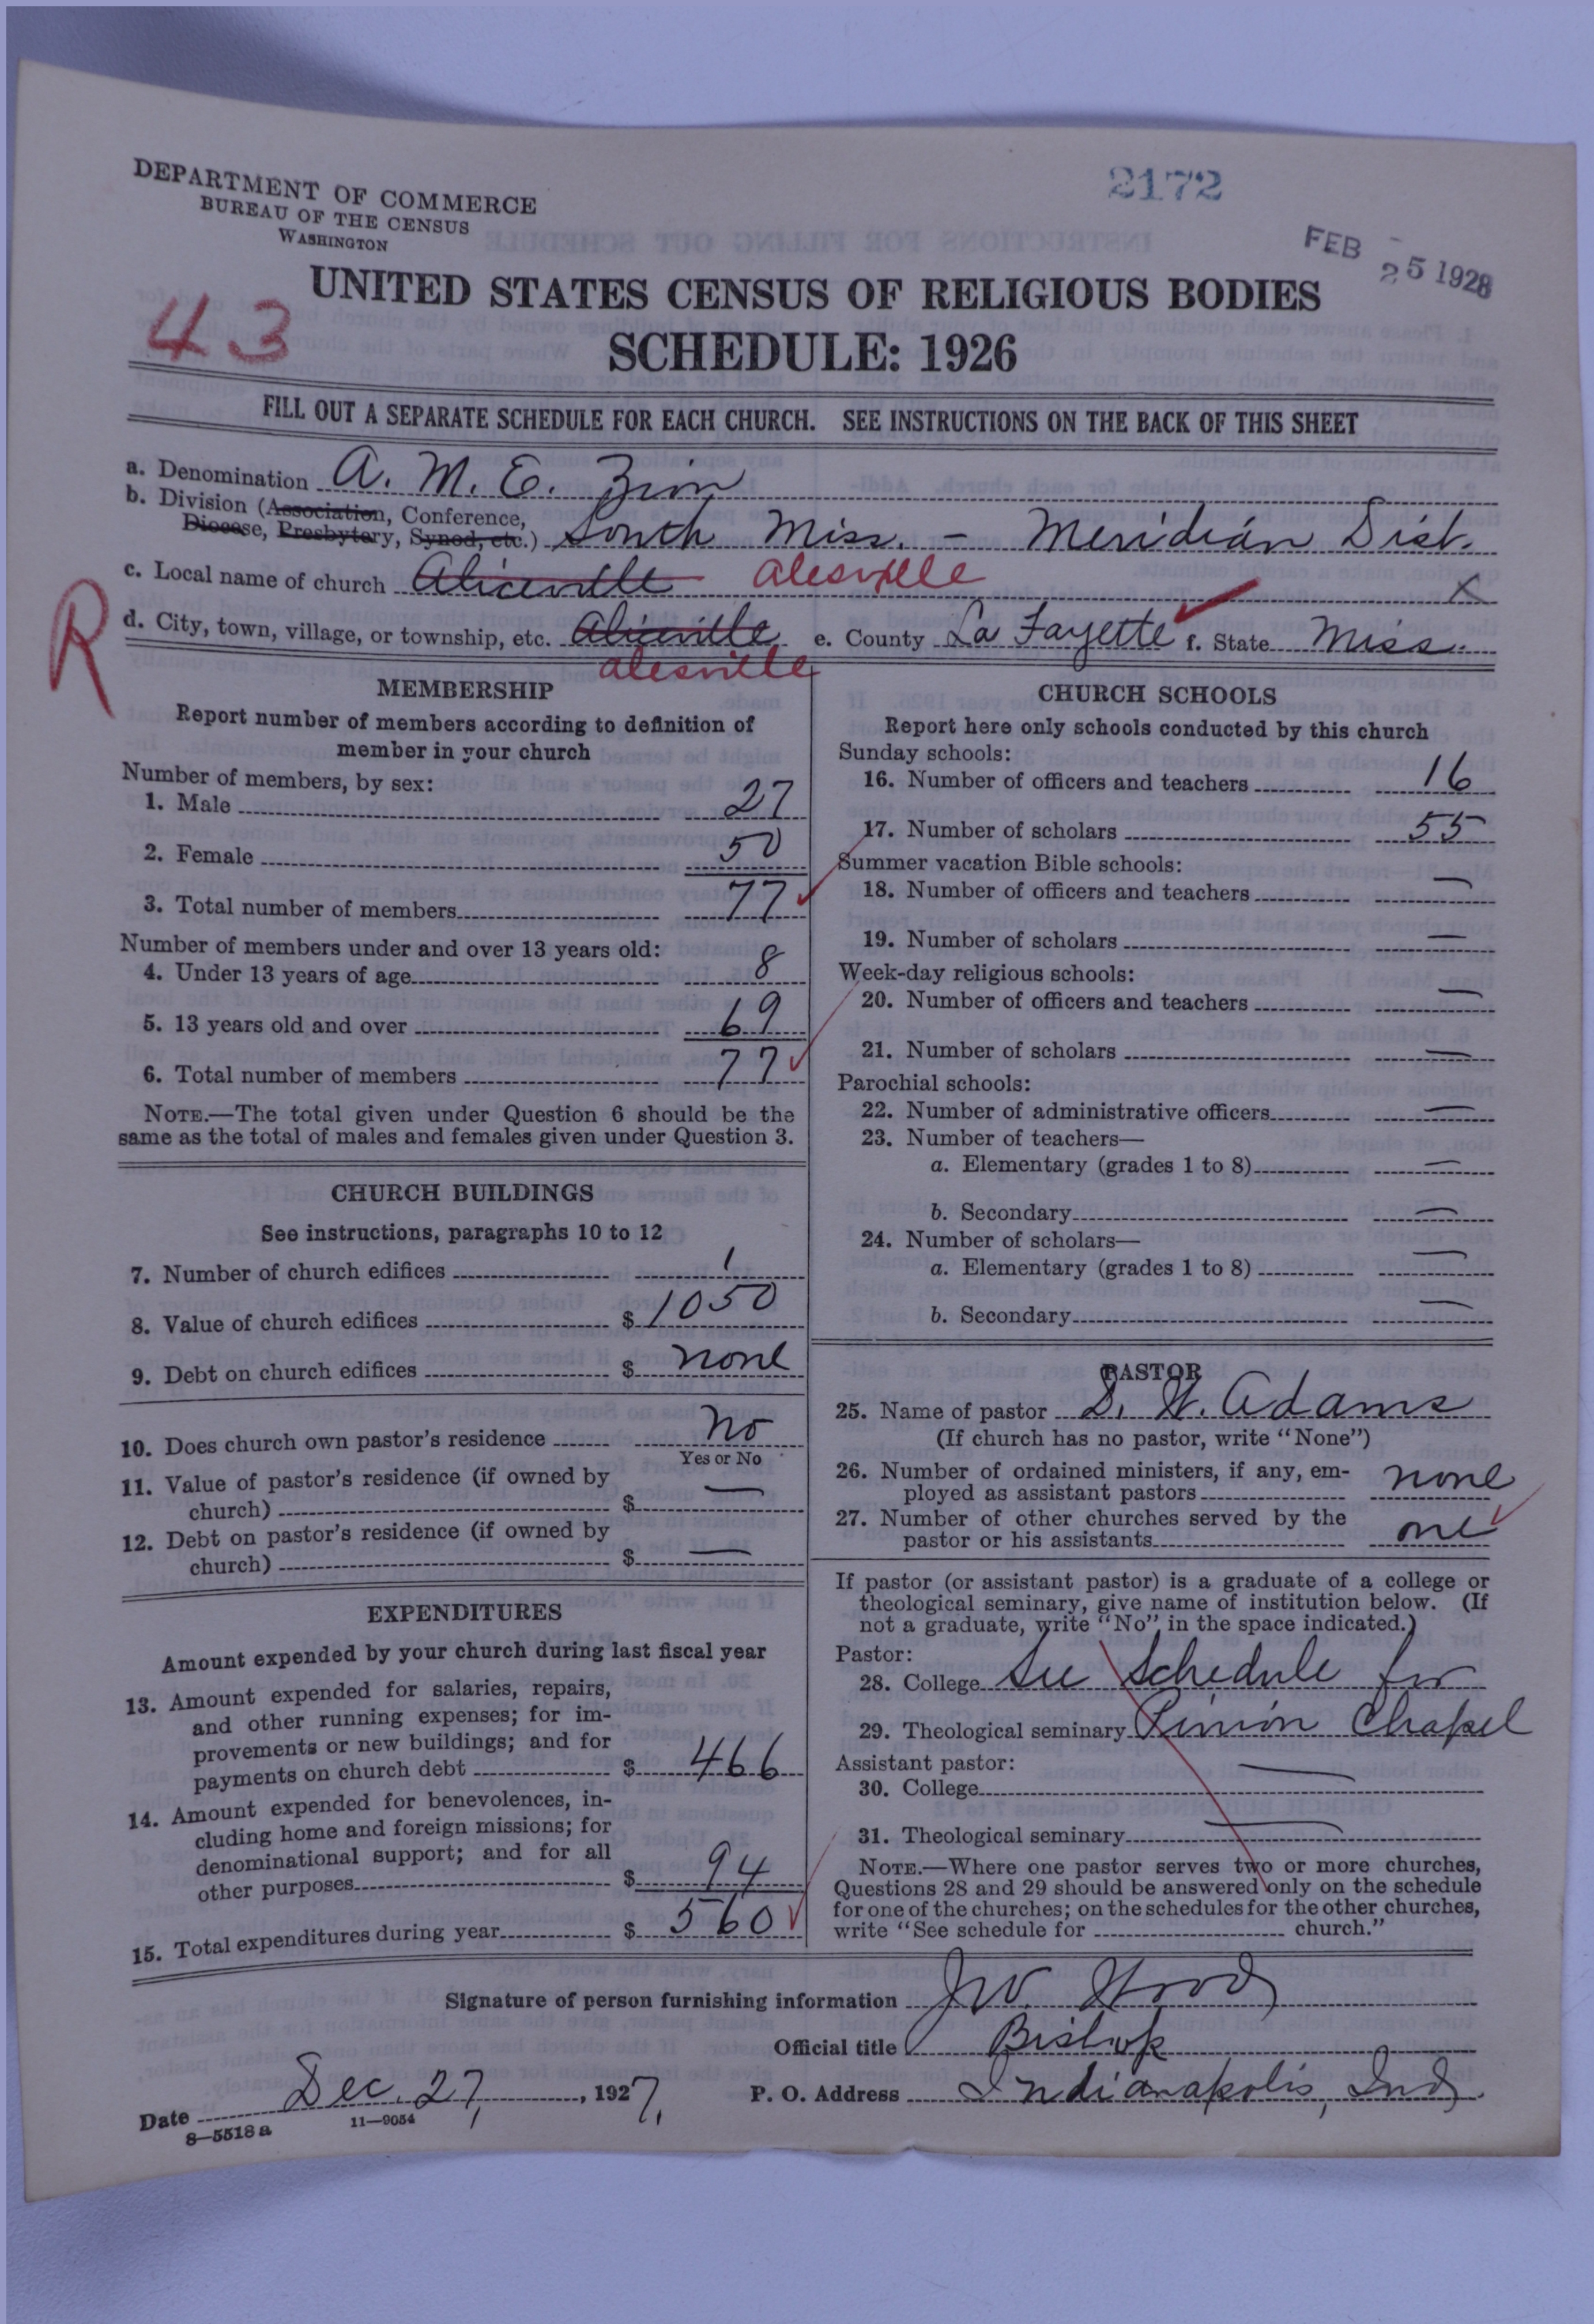 DEPARTMENT OF COMMERCE
BUREAU OF THE CENSUS
WASHINGTON
2172
FEB 25 1928
43
UNITED STATES CENSUS OF RELIGIOUS BODIES
SCHEDULE: 1926
FILL OUT A SEPARATE SCHEDULE FOR EACH CHURCH. SEE INSTRUCTIONS ON THE BACK OF THIS SHEET
a. Denomination A. M. E. Zion
b. Division (Association, Conference,
Diocese, Presbytery, Synod, etc.) South Miss. - Meridian Dist.
c. Local name of church Aliceville alesville X
R
d. City, town, village, or township, etc. Aliceville e. County La Fayette f. State Miss.
alesville
MEMBERSHIP
Report number of members according to definition of
member in your church
Number of members, by sex:
1. Male 27
2. Female 50
3. Total number of members 77
Number of members under and over 13 years old:
4. Under 13 years of age 8
5. 13 years old and over 69
6. Total number of members 77
NOTE.—The total given under Question 6 should be the
same as the total of males and females given under Question 3.
CHURCH BUILDINGS
See instructions, paragraphs 10 to 12
7. Number of church edifices 1
8. Value of church edifices $ 1050
9. Debt on church edifices $ none
10. Does church own pastor's residence No
Yes or No
11. Value of pastor's residence (if owned by
church) $ —
12. Debt on pastor's residence (if owned by
church) $ —
EXPENDITURES
Amount expended by your church during last fiscal year
13. Amount expended for salaries, repairs,
and other running expenses; for im-
provements or new buildings; and for
payments on church debt $ 466
14. Amount expended for benevolences, in-
cluding home and foreign missions; for
denominational support; and for all
other purposes $ 94
15. Total expenditures during year $ 560
CHURCH SCHOOLS
Report here only schools conducted by this church
Sunday schools:
16. Number of officers and teachers 16
17. Number of scholars 55
Summer vacation Bible schools:
18. Number of officers and teachers —
19. Number of scholars —
Week-day religious schools:
20. Number of officers and teachers —
21. Number of scholars —
Parochial schools:
22. Number of administrative officers —
23. Number of teachers—
a. Elementary (grades 1 to 8) —
b. Secondary —
24. Number of scholars—
a. Elementary (grades 1 to 8) —
b. Secondary —
PASTOR
25. Name of pastor S. W. Adams
(If church has no pastor, write "None")
26. Number of ordained ministers, if any, em-
ployed as assistant pastors none
27. Number of other churches served by the
pastor or his assistants one
If pastor (or assistant pastor) is a graduate of a college or
theological seminary, give name of institution below. (If
not a graduate, write "No" in the space indicated.)
Pastor:
28. College See Schedule for
29. Theological seminary Chapel
Assistant pastor:
30. College —
31. Theological seminary —
NOTE.—Where one pastor serves two or more churches,
Questions 28 and 29 should be answered only on the schedule
for one of the churches; on the schedules for the other churches,
write "See schedule for church."
Signature of person furnishing information J W. Wood
Official title Bishop
Date Dec. 27, 1927, P. O. Address Indianapolis, Ind.
8—5518a 11—9054